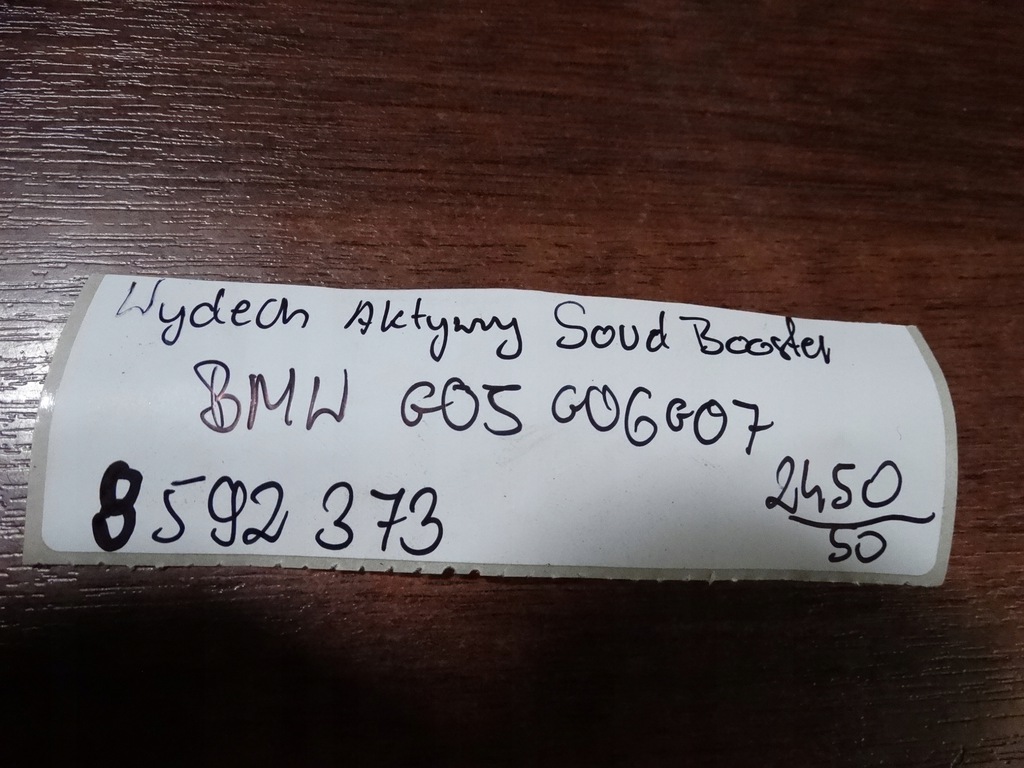 Wydech Aktywny Soud Booster
BMW G05 G06 G07
8592 373
2450
50